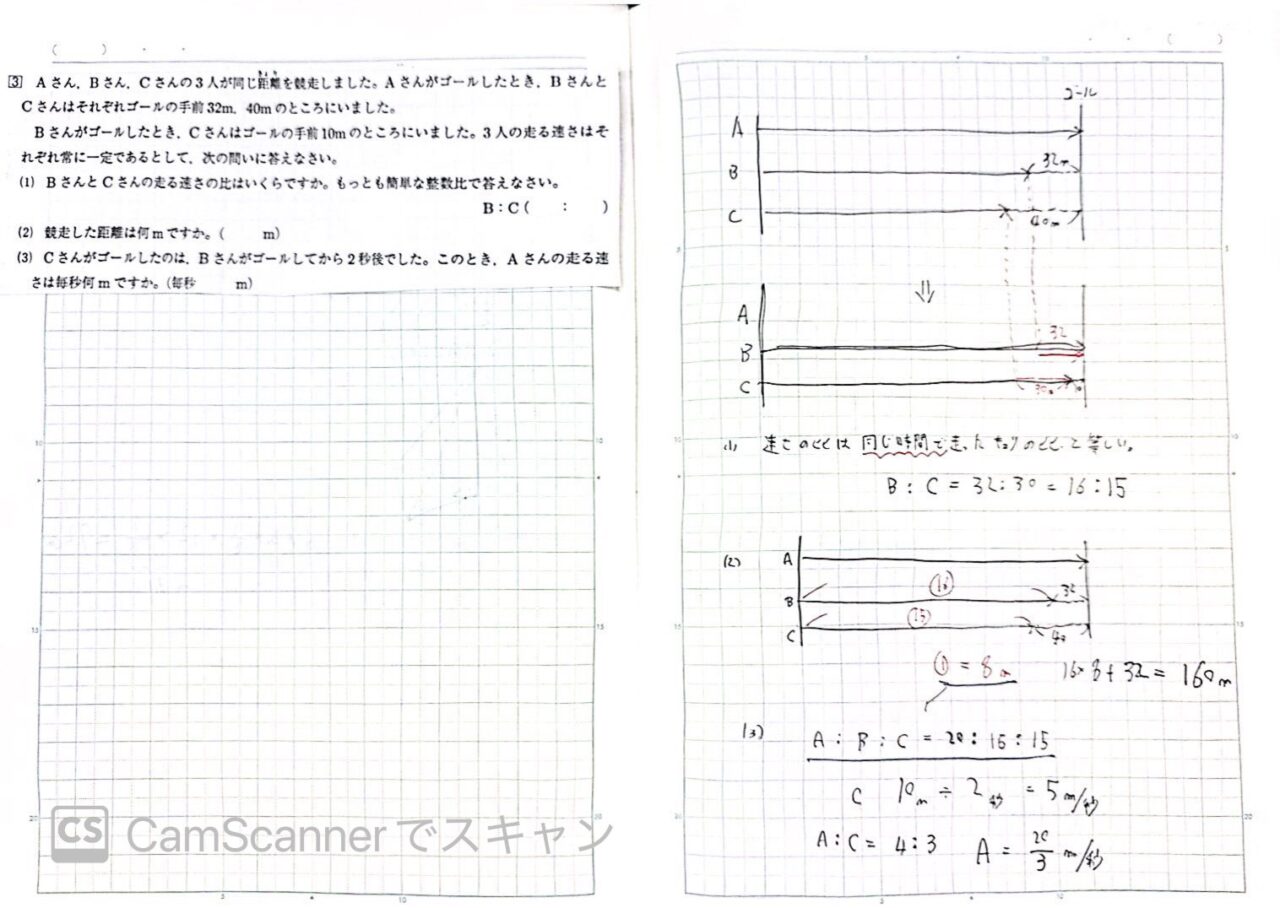 ( ) ・ ・
3 Aさん，Bさん，Cさんの3人が同じ距離を競走しました。Aさんがゴールしたとき，Bさんと
Cさんはそれぞれゴールの手前32m，40mのところにいました。
Bさんがゴールしたとき，Cさんはゴールの手前10mのところにいました。3人の走る速さはそ
れぞれ常に一定であるとして，次の問いに答えなさい。
(1) BさんとCさんの走る速さの比はいくらですか。もっとも簡単な整数比で答えなさい。
B：C（ ： ）
(2) 競走した距離は何mですか。（ m）
(3) Cさんがゴールしたのは，Bさんがゴールしてから2秒後でした。このとき，Aさんの走る速
さは毎秒何mですか。（毎秒 m）
CS CamScannerでスキャン
ゴール
A
B 32m
C 40m
⇓
A
B 32
C 30m 10
(1) 速さのヒは 同じ時間で走ったキョリのヒと等しい。
B : C = 32 : 30 = 16 : 15
(2) A
B ⑯ 32
C ⑮ 40
① = 8m 16×8+32 = 160m
(3) A : B : C = 20 : 16 : 15
C 10m ÷ 2秒 = 5m/秒
A:C = 4:3 A = 20/3 m/秒